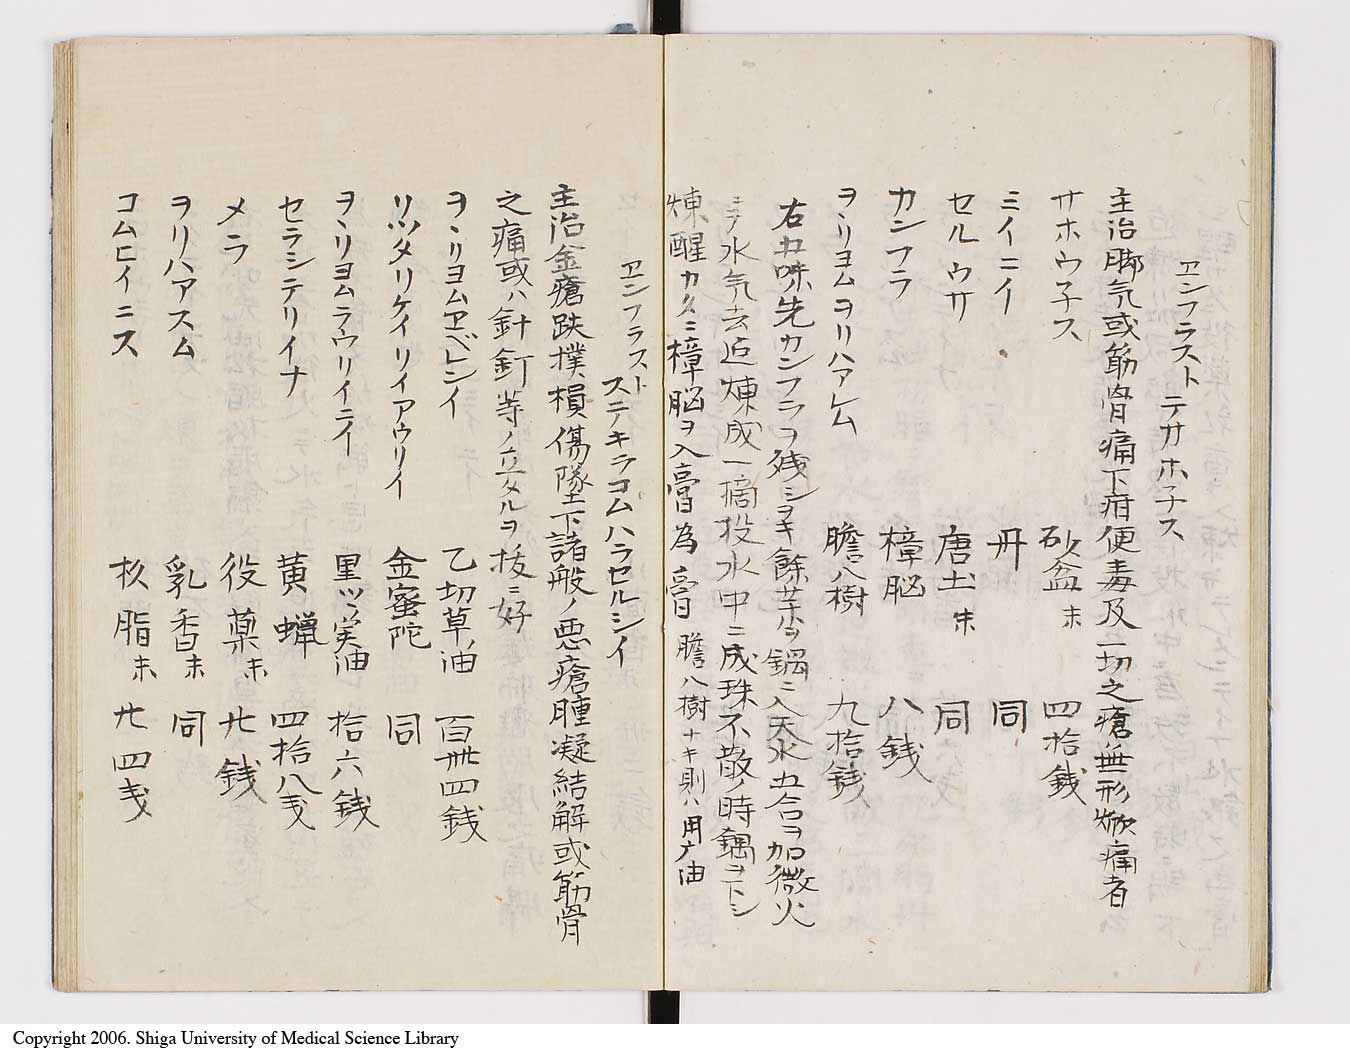 ヱンフラスト テサホ子ス
主治脚気或筋骨痛下疳便毒及一切之瘡無形焮痛者
サホウ子ス 砂盆末 四拾銭
ミイニイ 丹 同
セルウサ 唐土末 同
カンフラ 樟脳 八銭
ヲヽリヨムヲリハアレム 膽八樹 九拾銭
右五味先カンフラヲ残シヲキ餘薬ヲ鍋ニ入天水五合ヲ加微火
ニテ水気去迄煉成一滴投水中ニ成珠不散時鍋ヲ下シ
煉醒カタニ樟脳ヲ入膏為膏 膽八樹ナキ則ハ用广油
ヱンフラスト
ステキラコムハラセルシイ
主治金瘡跌撲損傷墜下諸般ノ悪瘡腫凝結解或筋骨
之痛或ハ針釘等ノ立タルヲ抜ニ好
ヲヽリヨムヱベレンイ 乙切草ノ油 百卌四銭
リツタリケイリイアウリイ 金蜜陀 同
ヲヽリヨムラウリイニイ 里ツヲ実油 拾六銭
セラシテリイナ 黄蝋 四拾八戔
メラ 役薬末 廿銭
ヲリハアスム 乳香末 同
コムヒイニス 松脂末 廿四戔
Copyright 2006. Shiga University of Medical Science Library